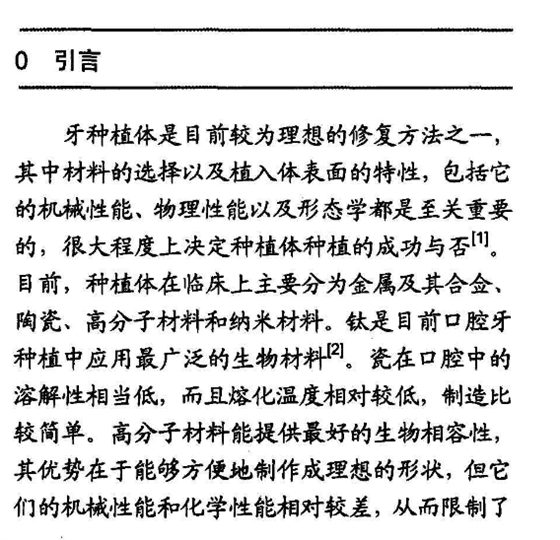 0 引言
牙种植体是目前较为理想的修复方法之一，
其中材料的选择以及植入体表面的特性，包括它
的机械性能、物理性能以及形态学都是至关重要
的，很大程度上决定种植体种植的成功与否[1]。
目前，种植体在临床上主要分为金属及其合金、
陶瓷、高分子材料和纳米材料。钛是目前口腔牙
种植中应用最广泛的生物材料[2]。瓷在口腔中的
溶解性相当低，而且熔化温度相对较低，制造比
较简单。高分子材料能提供最好的生物相容性，
其优势在于能够方便地制作成理想的形状，但它
们的机械性能和化学性能相对较差，从而限制了